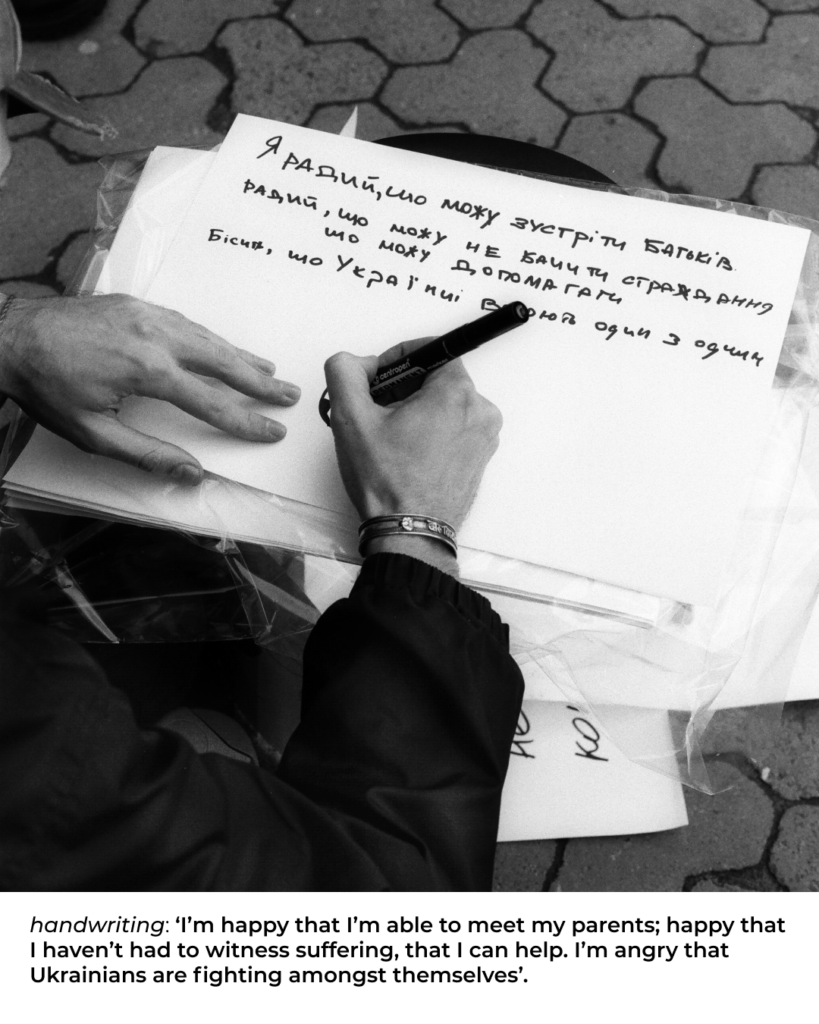 Я РАДИЙ, що можу зустріти БАТЬКІВ.
РАДИЙ, що можу НЕ БАЧИТИ СТРАЖДАННЯ
що можу ДОПОМАГАТИ
Бісить, що Українці один з одним
centropen
КО
handwriting: ‘I’m happy that I’m able to meet my parents; happy that
I haven’t had to witness suffering, that I can help. I’m angry that
Ukrainians are fighting amongst themselves’.